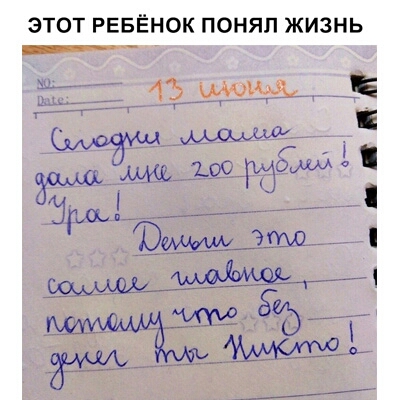 ЭТОТ РЕБЁНОК ПОНЯЛ ЖИЗНЬ
NO:
Date: 13 июня
Сегодня мама
дала мне 200 рублей!
Ура!
Деньги это
самое главное,
потому что без
денег ты Никто!